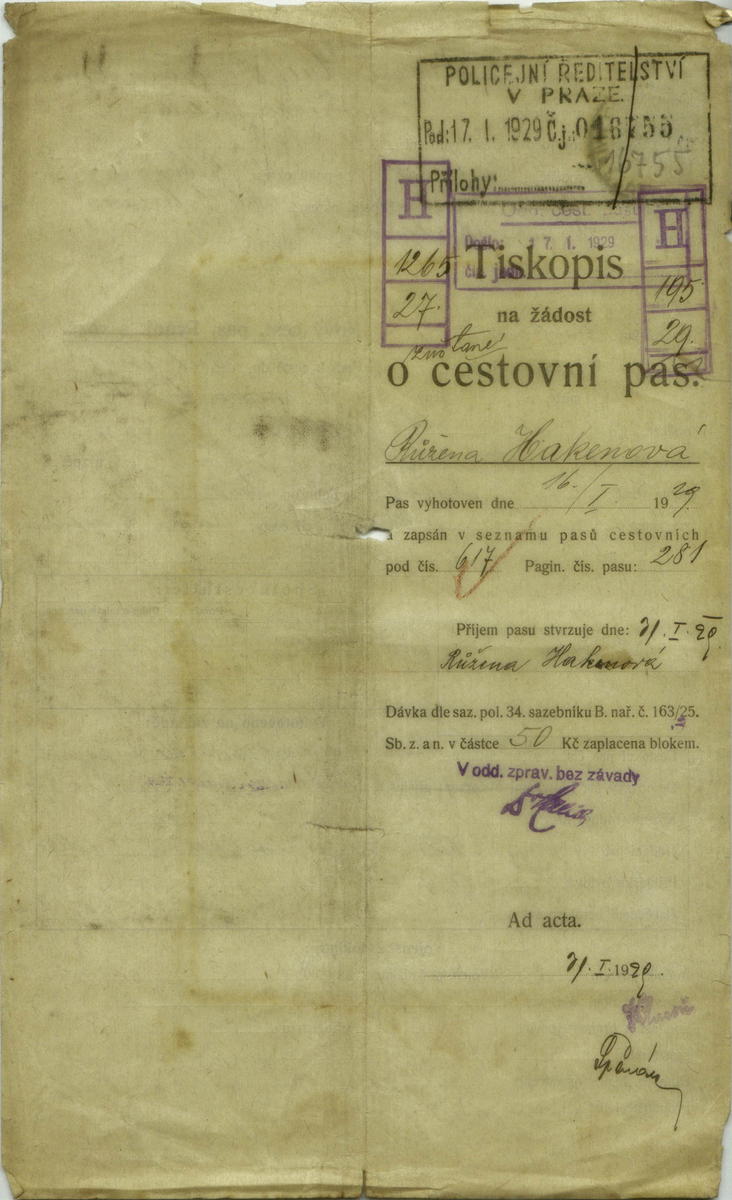 POLICEJNÍ ŘEDITELSTVÍ
V PRAZE.
Pod: 17. I. 1929 Č.j. 016755
16755
Přílohy:
H
1265
27.
H
195
29.
Došlo: 17. 1. 1929
Tiskopis
na žádost
o cestovní pas.
Růžena Hakenová
Pas vyhotoven dne 16./I. 1929.
a zapsán v seznamu pasů cestovních
pod čís. 617 Pagin. čís. pasu: 281
Příjem pasu stvrzuje dne: 21. I. 29.
Růžena Hakenová
Dávka dle saz. pol. 34. sazebníku B. nař. č. 163/25.
Sb. z. a n. v částce 50 Kč zaplacena blokem.
V odd. zprav. bez závady
Ad acta.
21. I. 1929.